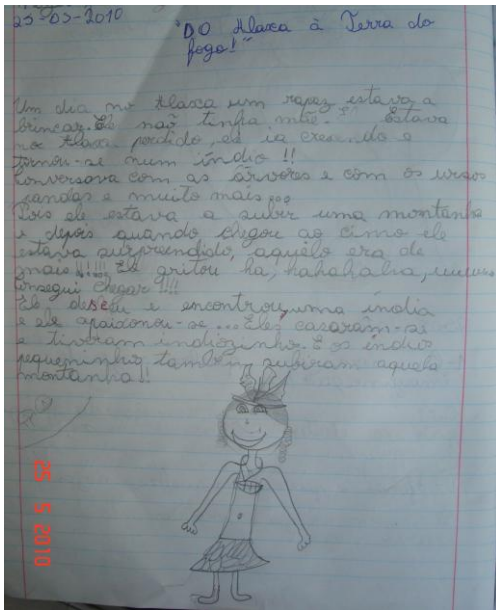 25-05-2010
"DO Alaxca à Terra do
fogo!"
Um dia no Alaxca um rapaz estava a
brincar. Ele não tinha mãe. Estava
no Alaxca perdido, ele ia e
tornou-se num índio !!
Conversava com as árvores e com os ursos
pandas e muito mais...
Pois ele estava a suber uma montanha
e depois quando chegou ao cimo ele
estava surpreendido, aquelo era de
mais!!!!! Ele gritou ha, hahahaha,
consegui chegar!!!
Ele desceu e encontrou, uma índia
e ele apaixonou-se... Eles casaram-se
e tiveram indiozinhos. E os índios
pequeninhos também subiram aquela
montanha!!
25 5 2010